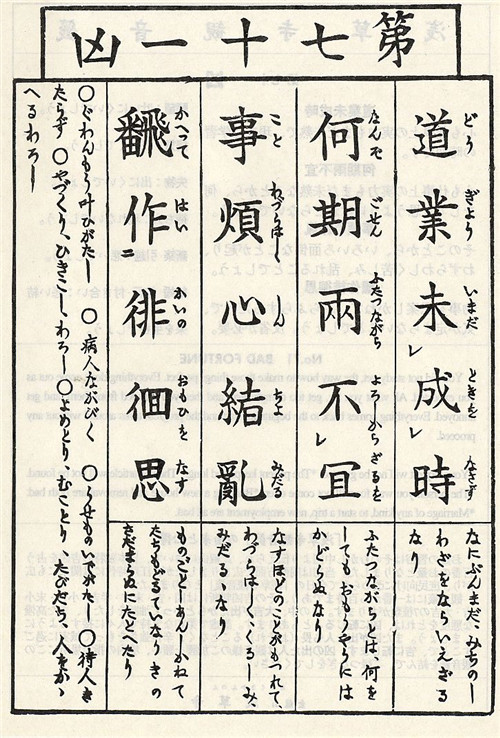 第七十一凶
道業未レ成時
どうぎよういまだときをなさず
なにぶんまだ、みちのし
わざをならいえざる
なり
何期兩不レ宜
なんぞごせんふたつながらよろしからざるを
ふたつながらとは、何を
しても、おもうやうには
かどらぬなり
事煩心緒亂
ことわづらはしくしんちよみだる
なすほどのことがもつれて、
わづらはしくくるしみ、
みだるゝなり
飜作二徘徊思
かへつてはいかいのおもひをなす
ものゝごとにあしく、かねて
たちもどるていなりきの
さだまらぬにたとへたり
〇ぐわんもう叶ひがたし 〇病人ながびく 〇うせものいでがたし 〇待人き
たらず 〇やづくり、ひきこし、わろし 〇よめとり、むことり、たびだち、人をかゝ
へるわろし